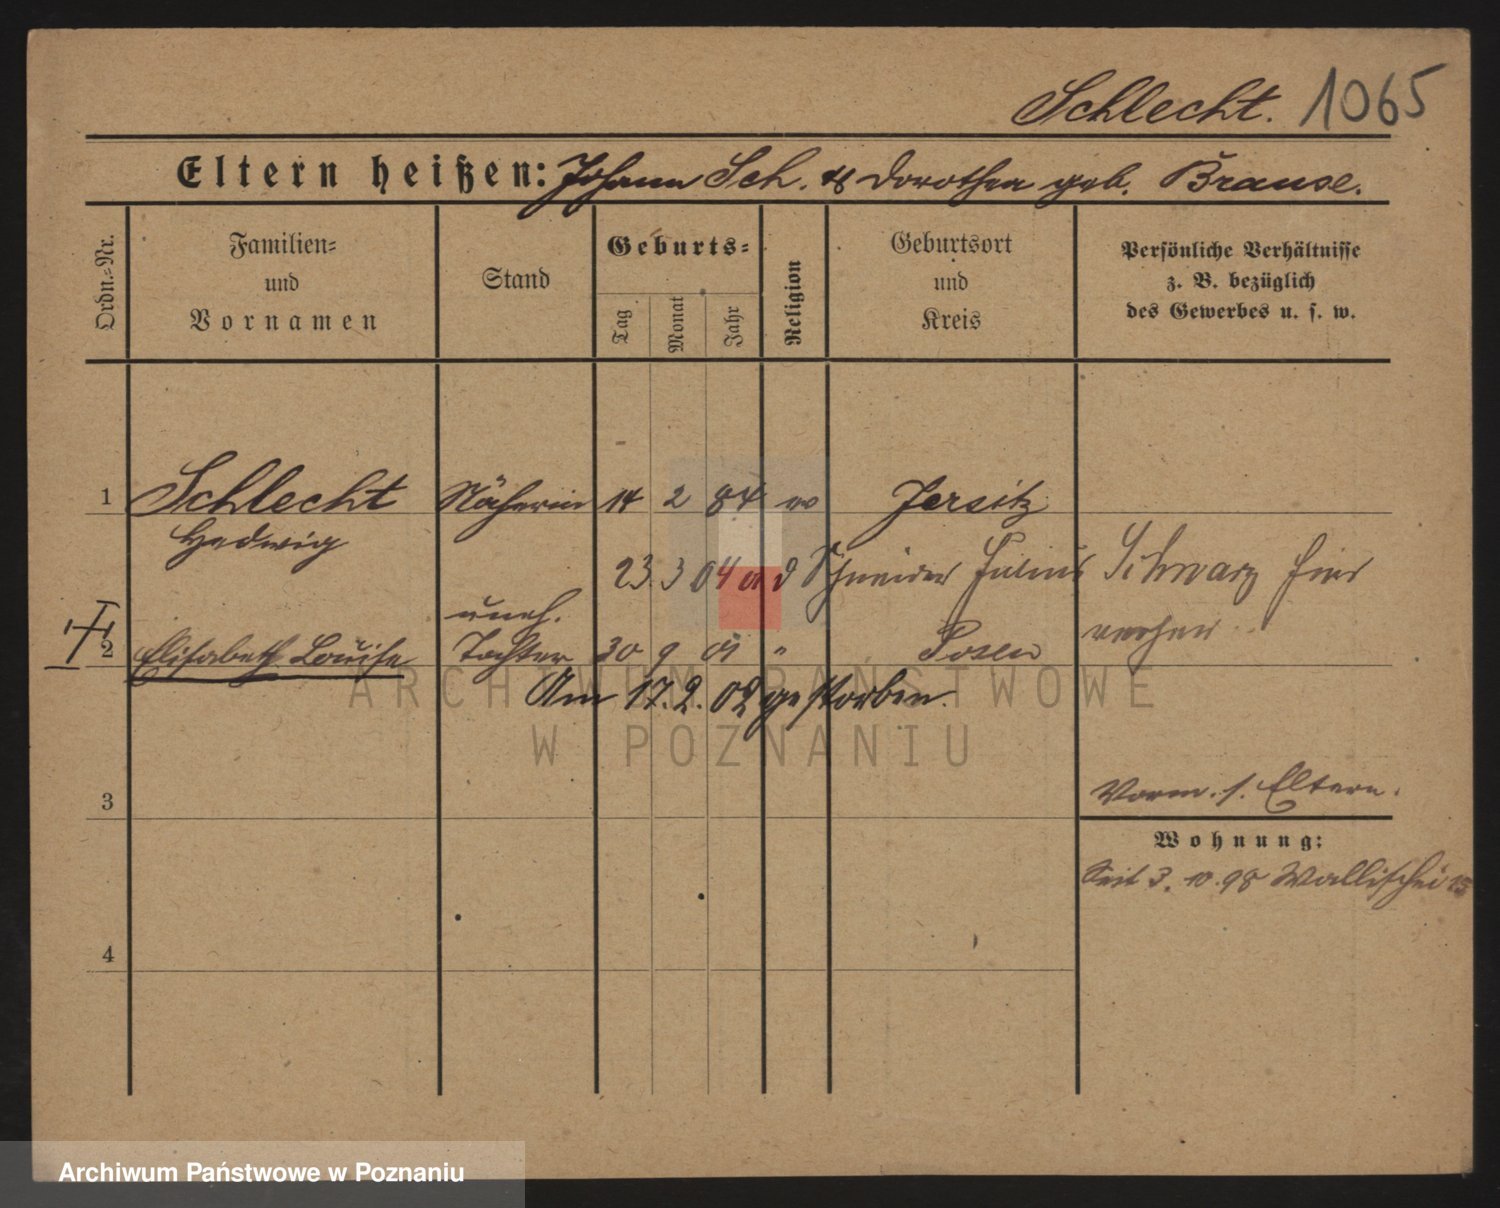 Schlecht. 1065
Eltern heißen: Johann Sch. & Dorothea geb. Brause.
Ordn.=Nr.
Familien=
und
Vornamen
Stand
Geburts=
Tag
Monat
Jahr
Religion
Geburtsort
und
Kreis
Persönliche Verhältnisse
z. B. bezüglich
des Gewerbes u. s. w.
1 Schlecht Näherin 14 2 84 Jersitz
Hedwig
23. 3 04 Schneider Julius Schwarz hier
uneh.
2 Elisabeth Louise Tochter 30 9 01 " Posen
Am 17. 2. 02 gestorben.
3 Vorm. s. Eltern.
Wohnung:
Seit 3. 10. 98 Wallischei
4
ARCHIWUM PAŃSTWOWE
W POZNANIU
Archiwum Państwowe w Poznaniu